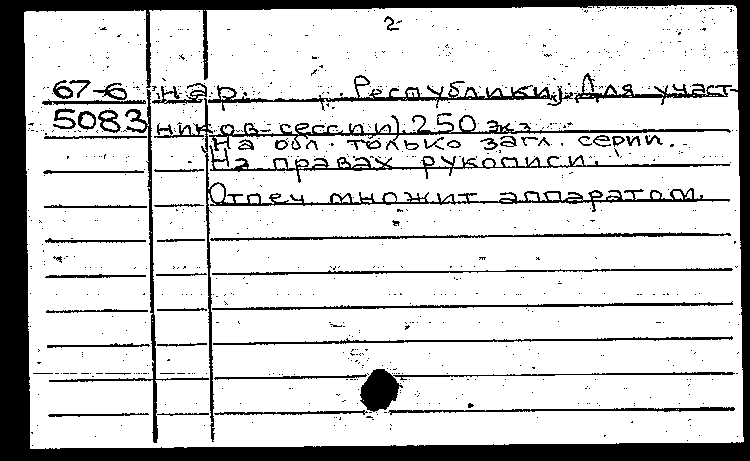 2
67-6 нар. Республики; Для участ-
5083 ников сессии). 250 экз.
На обл. только загл. серии.
На правах рукописи.
Отпеч множит аппаратом.